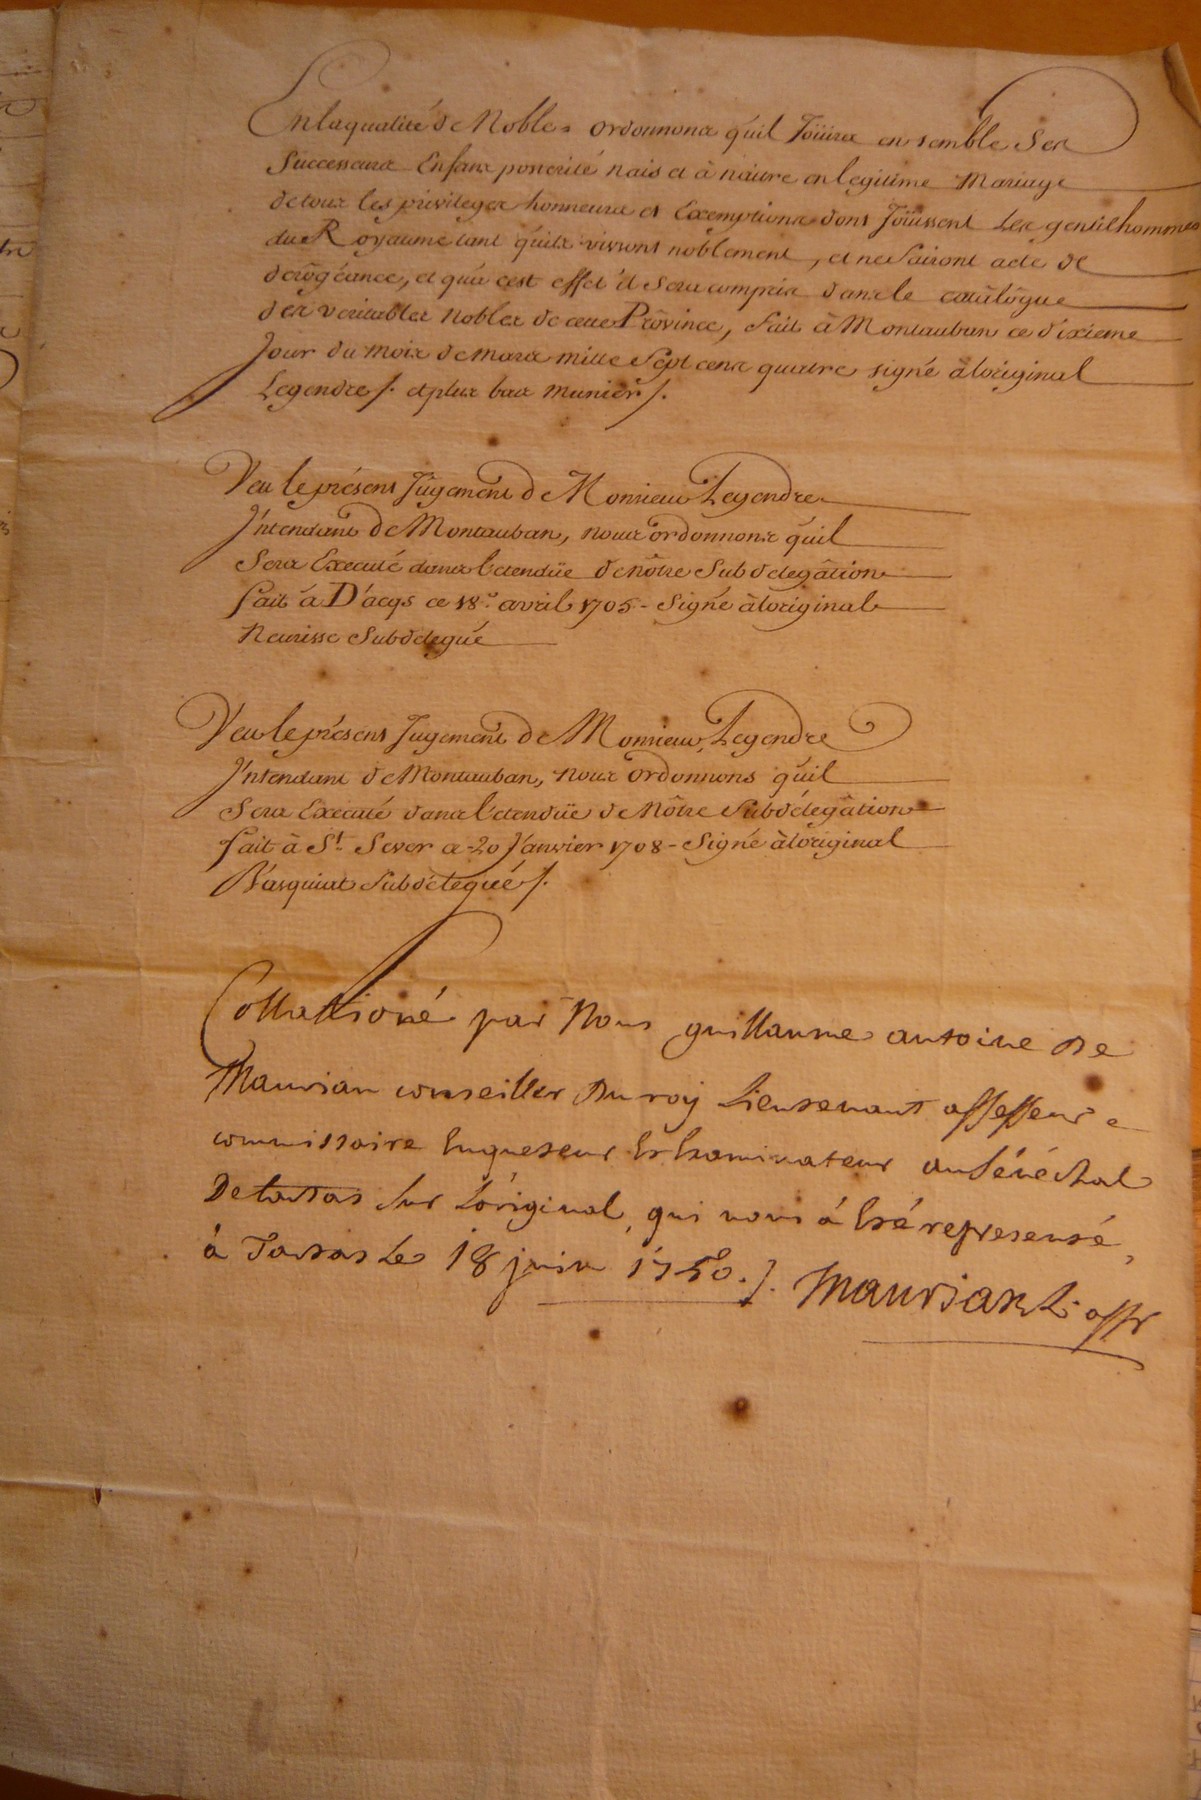 En la qualité de Noble, ordonnons quil Joüira ensemble Ses
Successeurs Enfans posterité nais et à naitre en legitime Mariage
de tous les privileges honneurs et Exemptions dont Joüissent Les gentilhommes
du Royaume tant quils vivront noblement, et ne fairont acte de
derôgéance, et qua cest effet il Sera compris dans le catâlôgue
des veritables Nobles de cette Prôvince, fait à Montauban ce dixieme
Jour du mois de mars mille Sept cens quatre signé àloriginal
Legendre /. et plus bas Munier /.
Veu le présent Jûgement de Monsieur Legendre
Jntendant de Montauban, nous ordonnons quil
Sera Executé dans létendüe de nôtre Subdelegâtion
fait à D'acqs ce 18.e avril 1705 - Signé àloriginal
Neurisse Subdelegué
Veu le présent Jugement de Monsieur Legendre
Jntendant de Montauban, nous ordonnons quil
Sera Executé dans létendüe de Nôtre Subdélegâtion
fait à St. Sever ce 20 Janvier 1708 - Signé àloriginal
Basquiat Subdélegué /.
Collationé par Nous guillaume antoine De
Maurian conseiller Du roy Lieutenant assesseur
commissaire Enqueteur Et Examinateur au Sénéchal
De tartas Sur L'original, qui nous á Eté representé,
à Tartas Le 18 juin 1750. /. Maurian Lt. assr